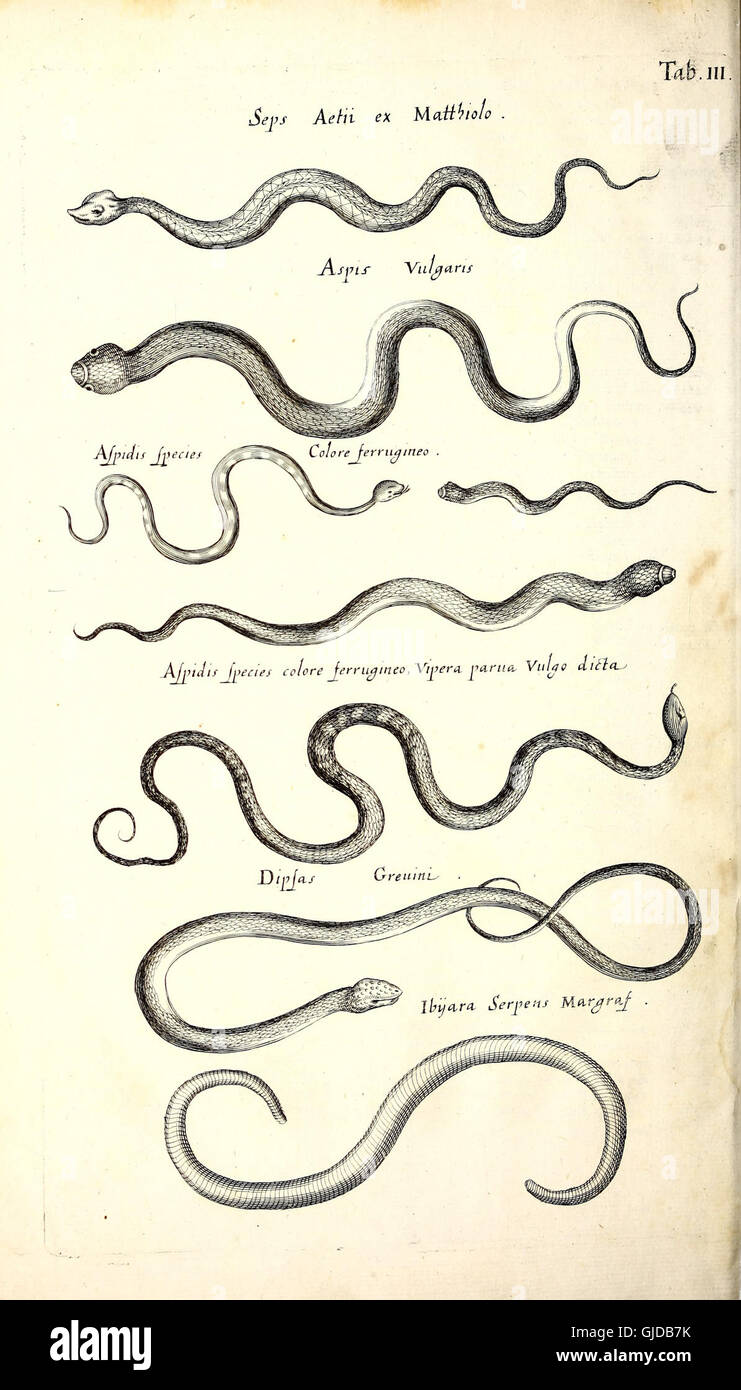 Tab. III.
Seps Aetii ex Matthiolo.
Aspis Vulgaris
Aſpidis ſpecies Colore ferrugineo.
Aſpidis ſpecies colore ferrugineo, Vipera parua Vulgo dicta
Dipſas Greuini.
Ibÿara Serpens Margraf.
alamy
alamy
alamy
alamy
Image ID: GJDB7K
www.alamy.com